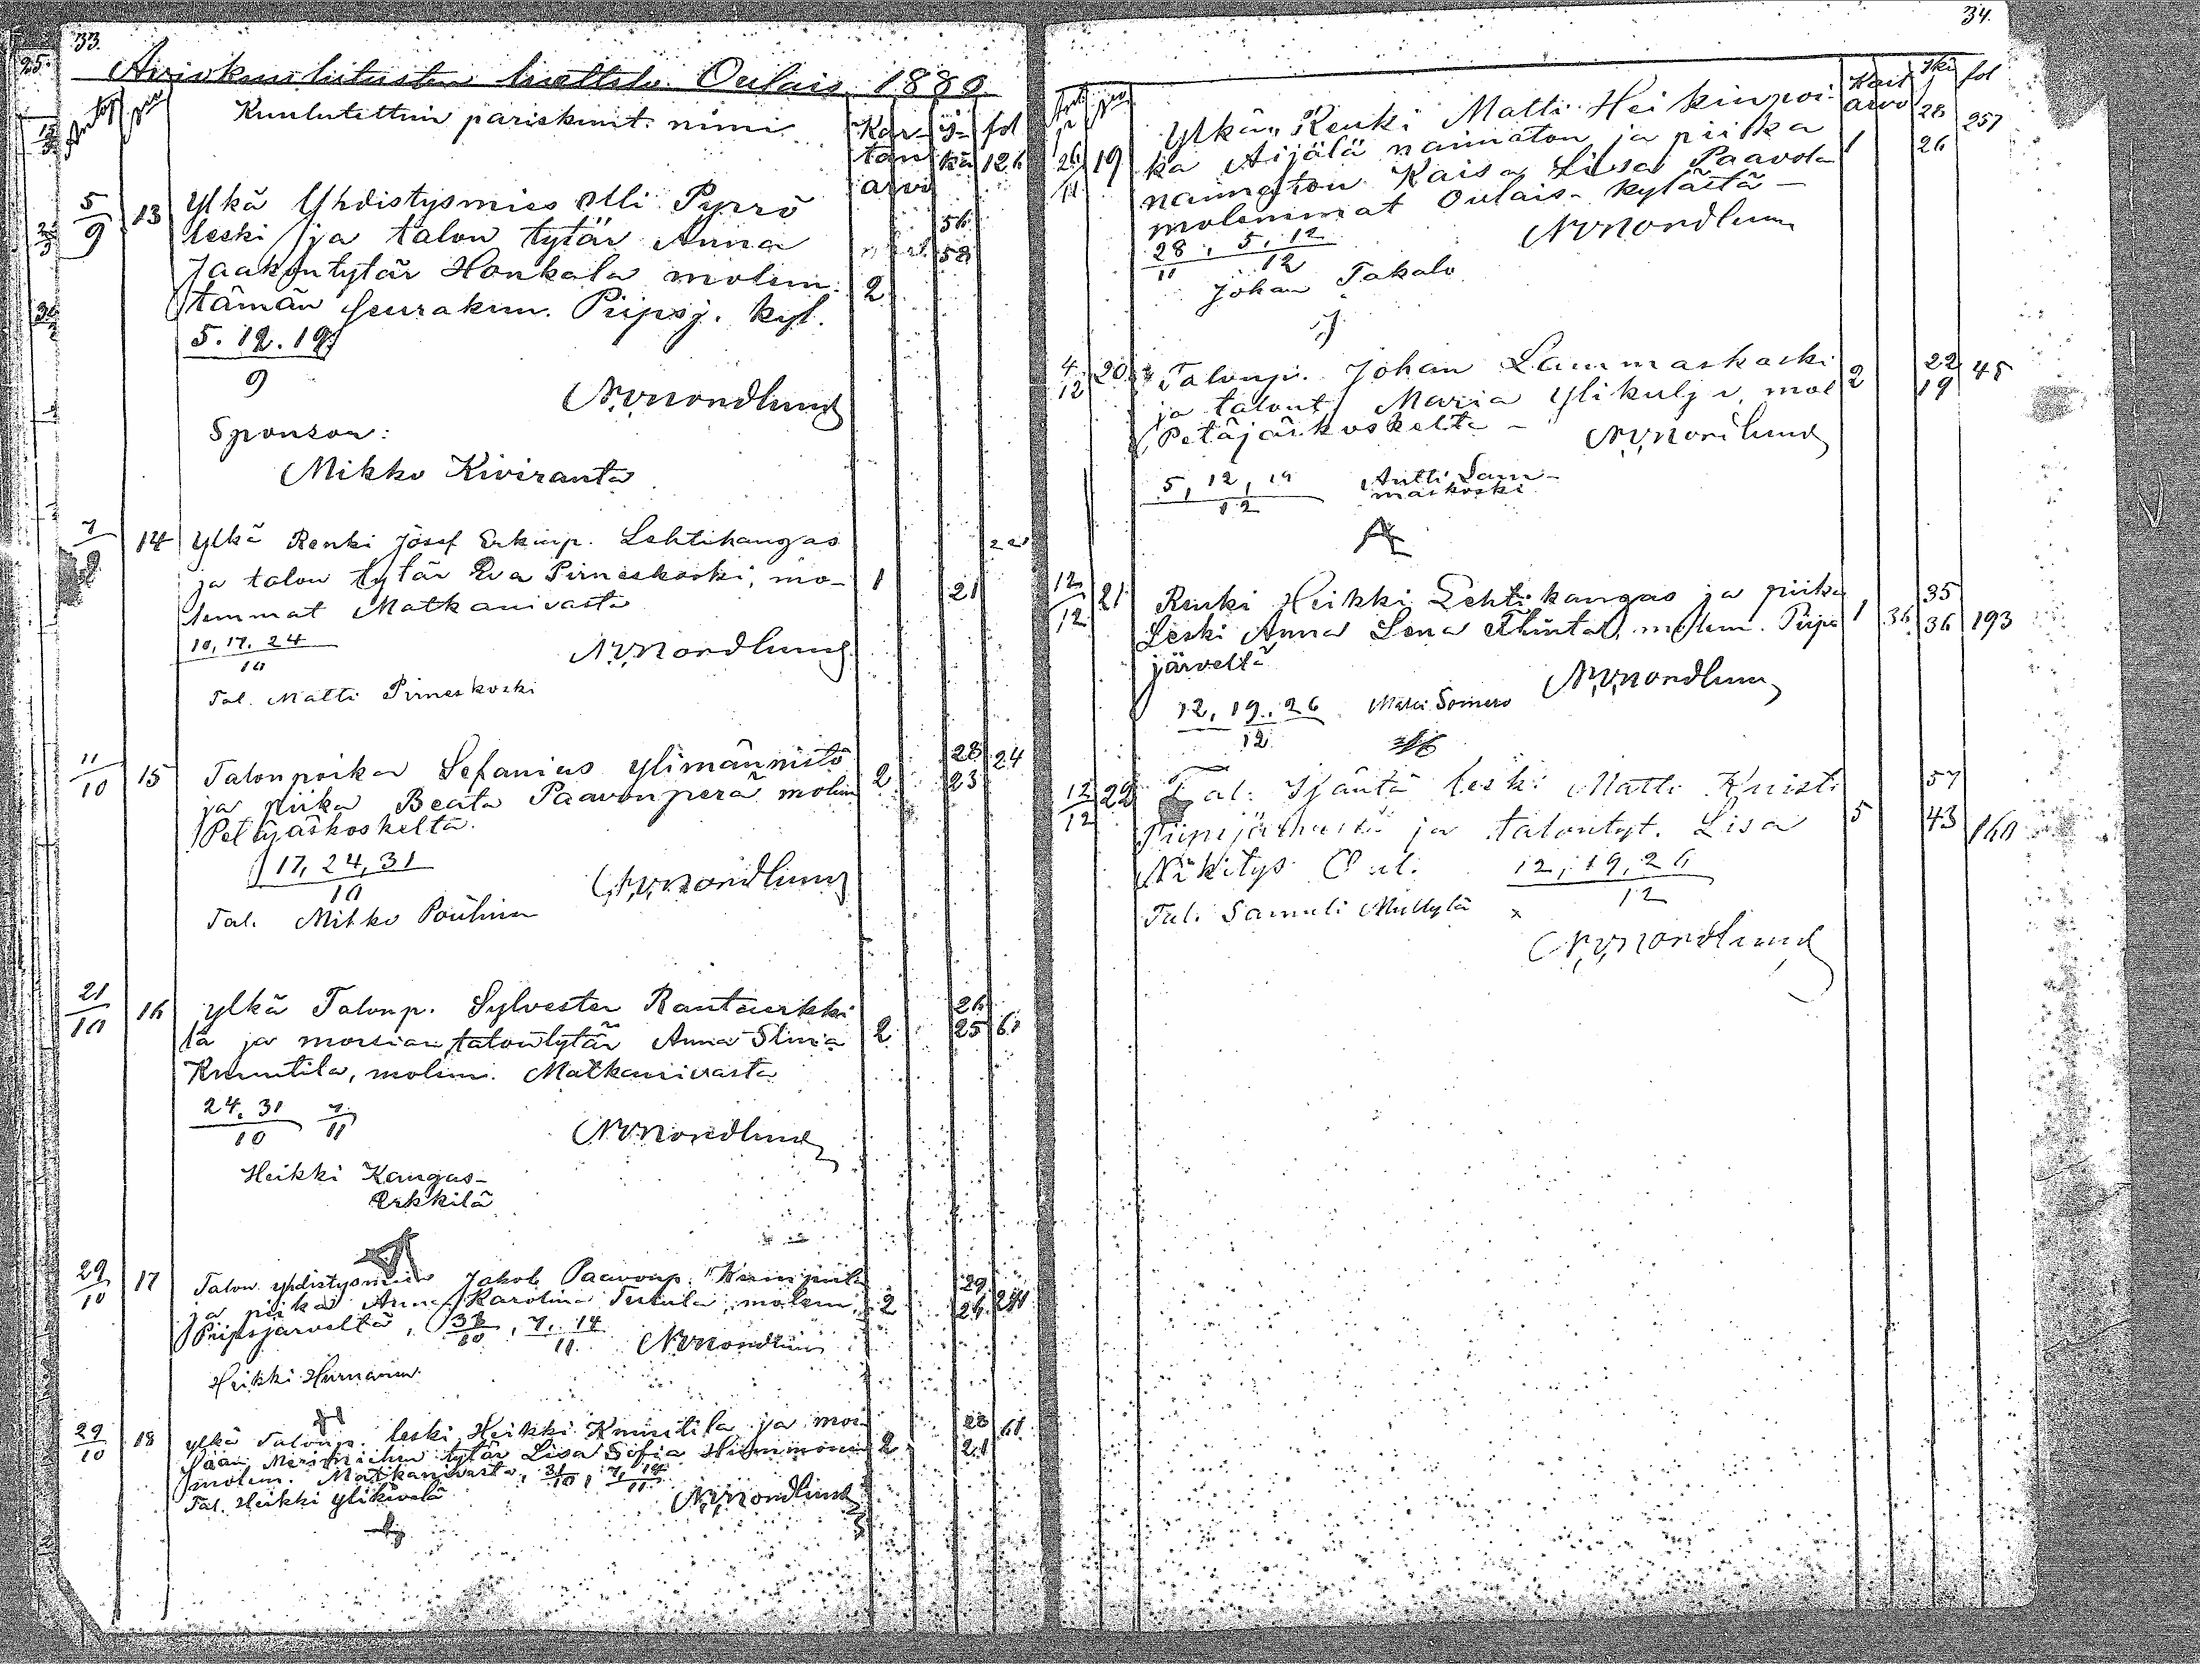 33.
Aviokuulutusten luettelo Oulais 1880
Kuulutettuin pariskunt. nimi.
Kartan arvo
Ikä
fol
126
5/9 13 Ylkä Yhdistysmies Olli Pyrrö
leski ja talon tytär Anna 56
Jaakontytär Honkala molem. 2 58
tämän seurakun. Piipsj. kyl.
5. 12. 19.
9
N.V. Nordlund
Sponsor:
Mikko Kiviranta
14 Ylkä Renki Josef Erkinp. Lehtikangas
ja talon tytär Eva Pirneskoski, mo- 1 21
lemmat Matkanivasta
10, 17. 24
10
N.V. Nordlund
Tal. Matti Pirneskoski
11/10 15 Talonpoika Sefanias Ylimännistö 28 24
ja piika Beata Paavonperä molem 2 23
Petäjäskoskelta.
17, 24, 31
10
N.V. Nordlund
Tal. Mikko
21/10 16 Ylkä Talonp. Sylvester Rantaerkki- 26
lä ja morsian talontytär Anna Stina 2 25 61
Knuutila, molem. Matkanivasta
24. 31 7.
10 11
N.V. Nordlund
Heikki Kangas-
Erkkilä
29/10 17 Talon yhdistysmies Jakob Paavonp. 29
ja piika Anna Karolina molem. 2 26
Piipsjärveltä, 31/10, 7. 14/11 N.V. Nordlund
Heikki
29/10 18 Ylkä Talonp. leski Heikki Knuutila ja mor- 28 61
sian tytär Lisa Sofia 2 21
molem. Matkanivasta, 31/10, 7, 14/11
Tal. Heikki Ylikivelä
N.V. Nordlund
34.
Kart arvo
Ikä
fol
26/11 19 Ylkä Renki Matti Heikinpoi- 28 257
ka Äijälä naimaton ja piika 1 26
naimaton Kaisa Liisa Paavola
molemmat Oulais- kylästä -
28, 5, 12
11 12
N.V. Nordlund
Johan Takalo
4/12 20 Talonp. Johan Lammaskoski 22 45
ja talont. Maria Ylikulju, mol 2 19
Petäjäskoskelta -
N.V. Nordlund
5, 12, 19
12
Antti Lam-
maskoski
12/12 21 Renki Heikki Lehtikangas ja piika 35
Leski Anna Lena molem. Piips 1 36 36 193
järveltä
N.V. Nordlund
12, 19, 26
12
Matti Somero
12/12 22 Tal. Isäntä leski Matti 57
ja talontyt. Lisa 5 43 160
Näkitys Oul. 12, 19, 26
12
Tal. Samuli Myllylä x
N.V. Nordlund